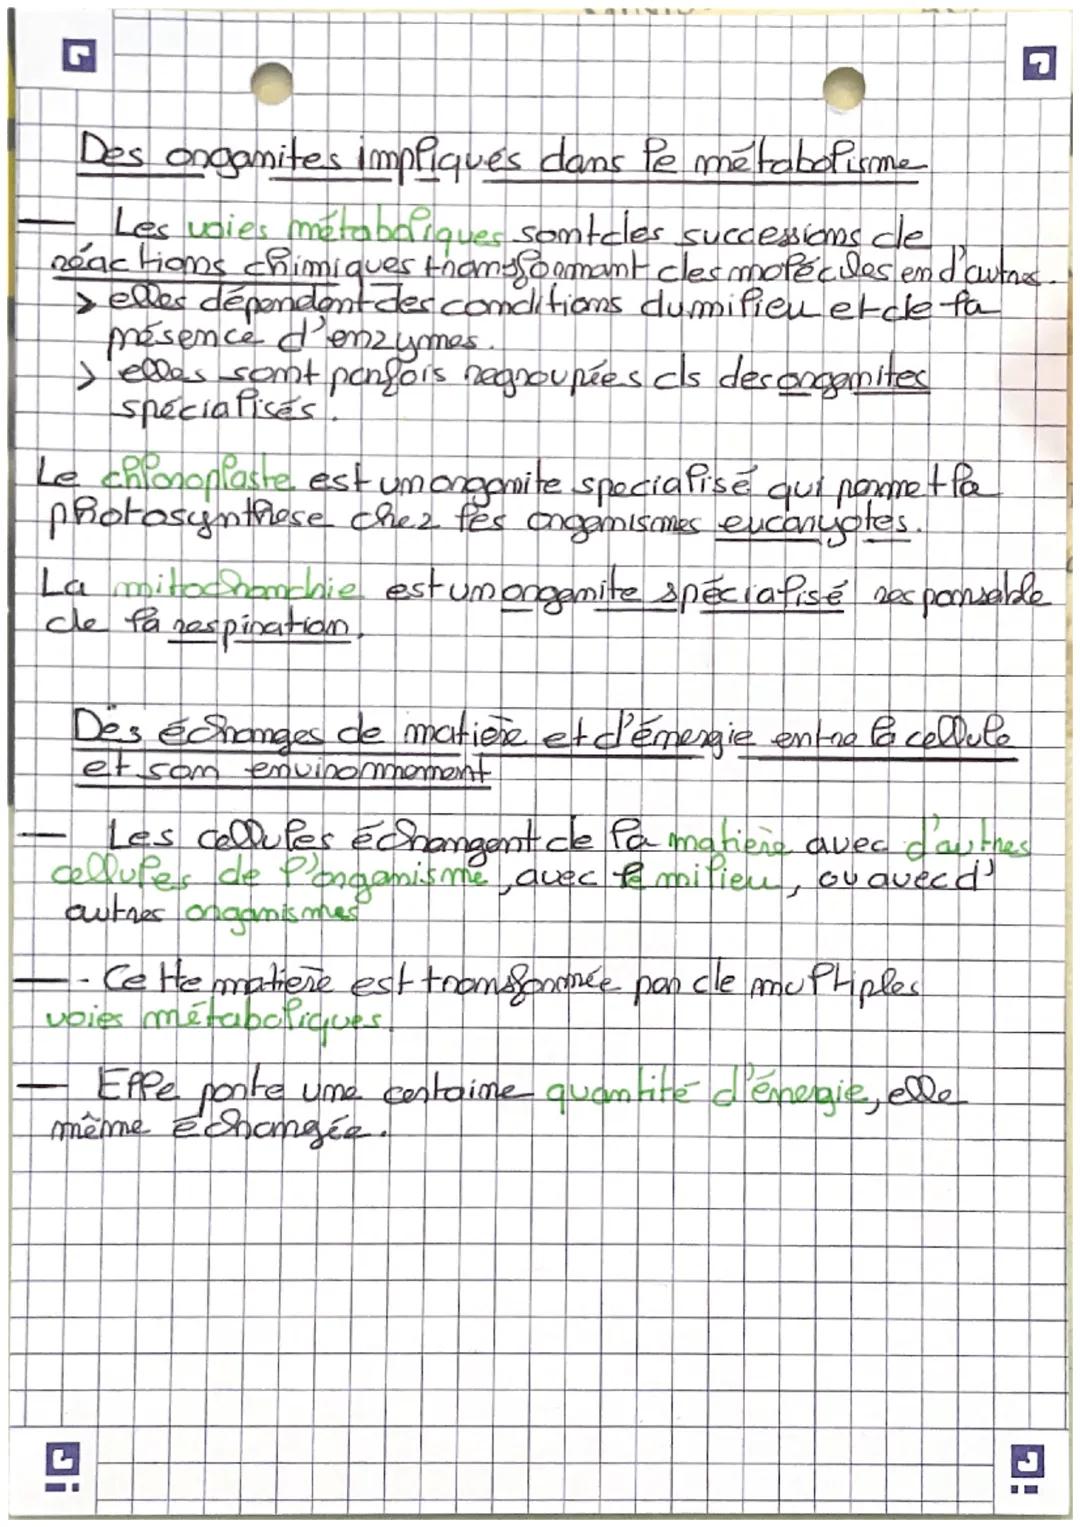 Des organites impliqués dans le métabolisme
— Les voies métaboliques sont des successions de
réactions chimiques transformant des molécules en d'autres.
> elles dépendent des conditions du milieu et de la
présence d'enzymes.
> elles sont parfois regroupées ds des organites
spécialisés.
Le chloroplaste est un organite specialisé qui permet la
photosynthese chez les organismes eucaryotes.
La mitochondrie est un organite spécialisé responsable
de la respiration.
Des échanges de matière et d'énergie entre la cellule
et son environnement
— Les cellules échangent de la matière avec d'autres
cellules de l'organisme, avec le milieu, ou avec d'
autres organismes
— - Cette matière est transformée par de multiples
voies métaboliques.
— Elle porte une certaine quantité d'énergie, elle
même échangée.